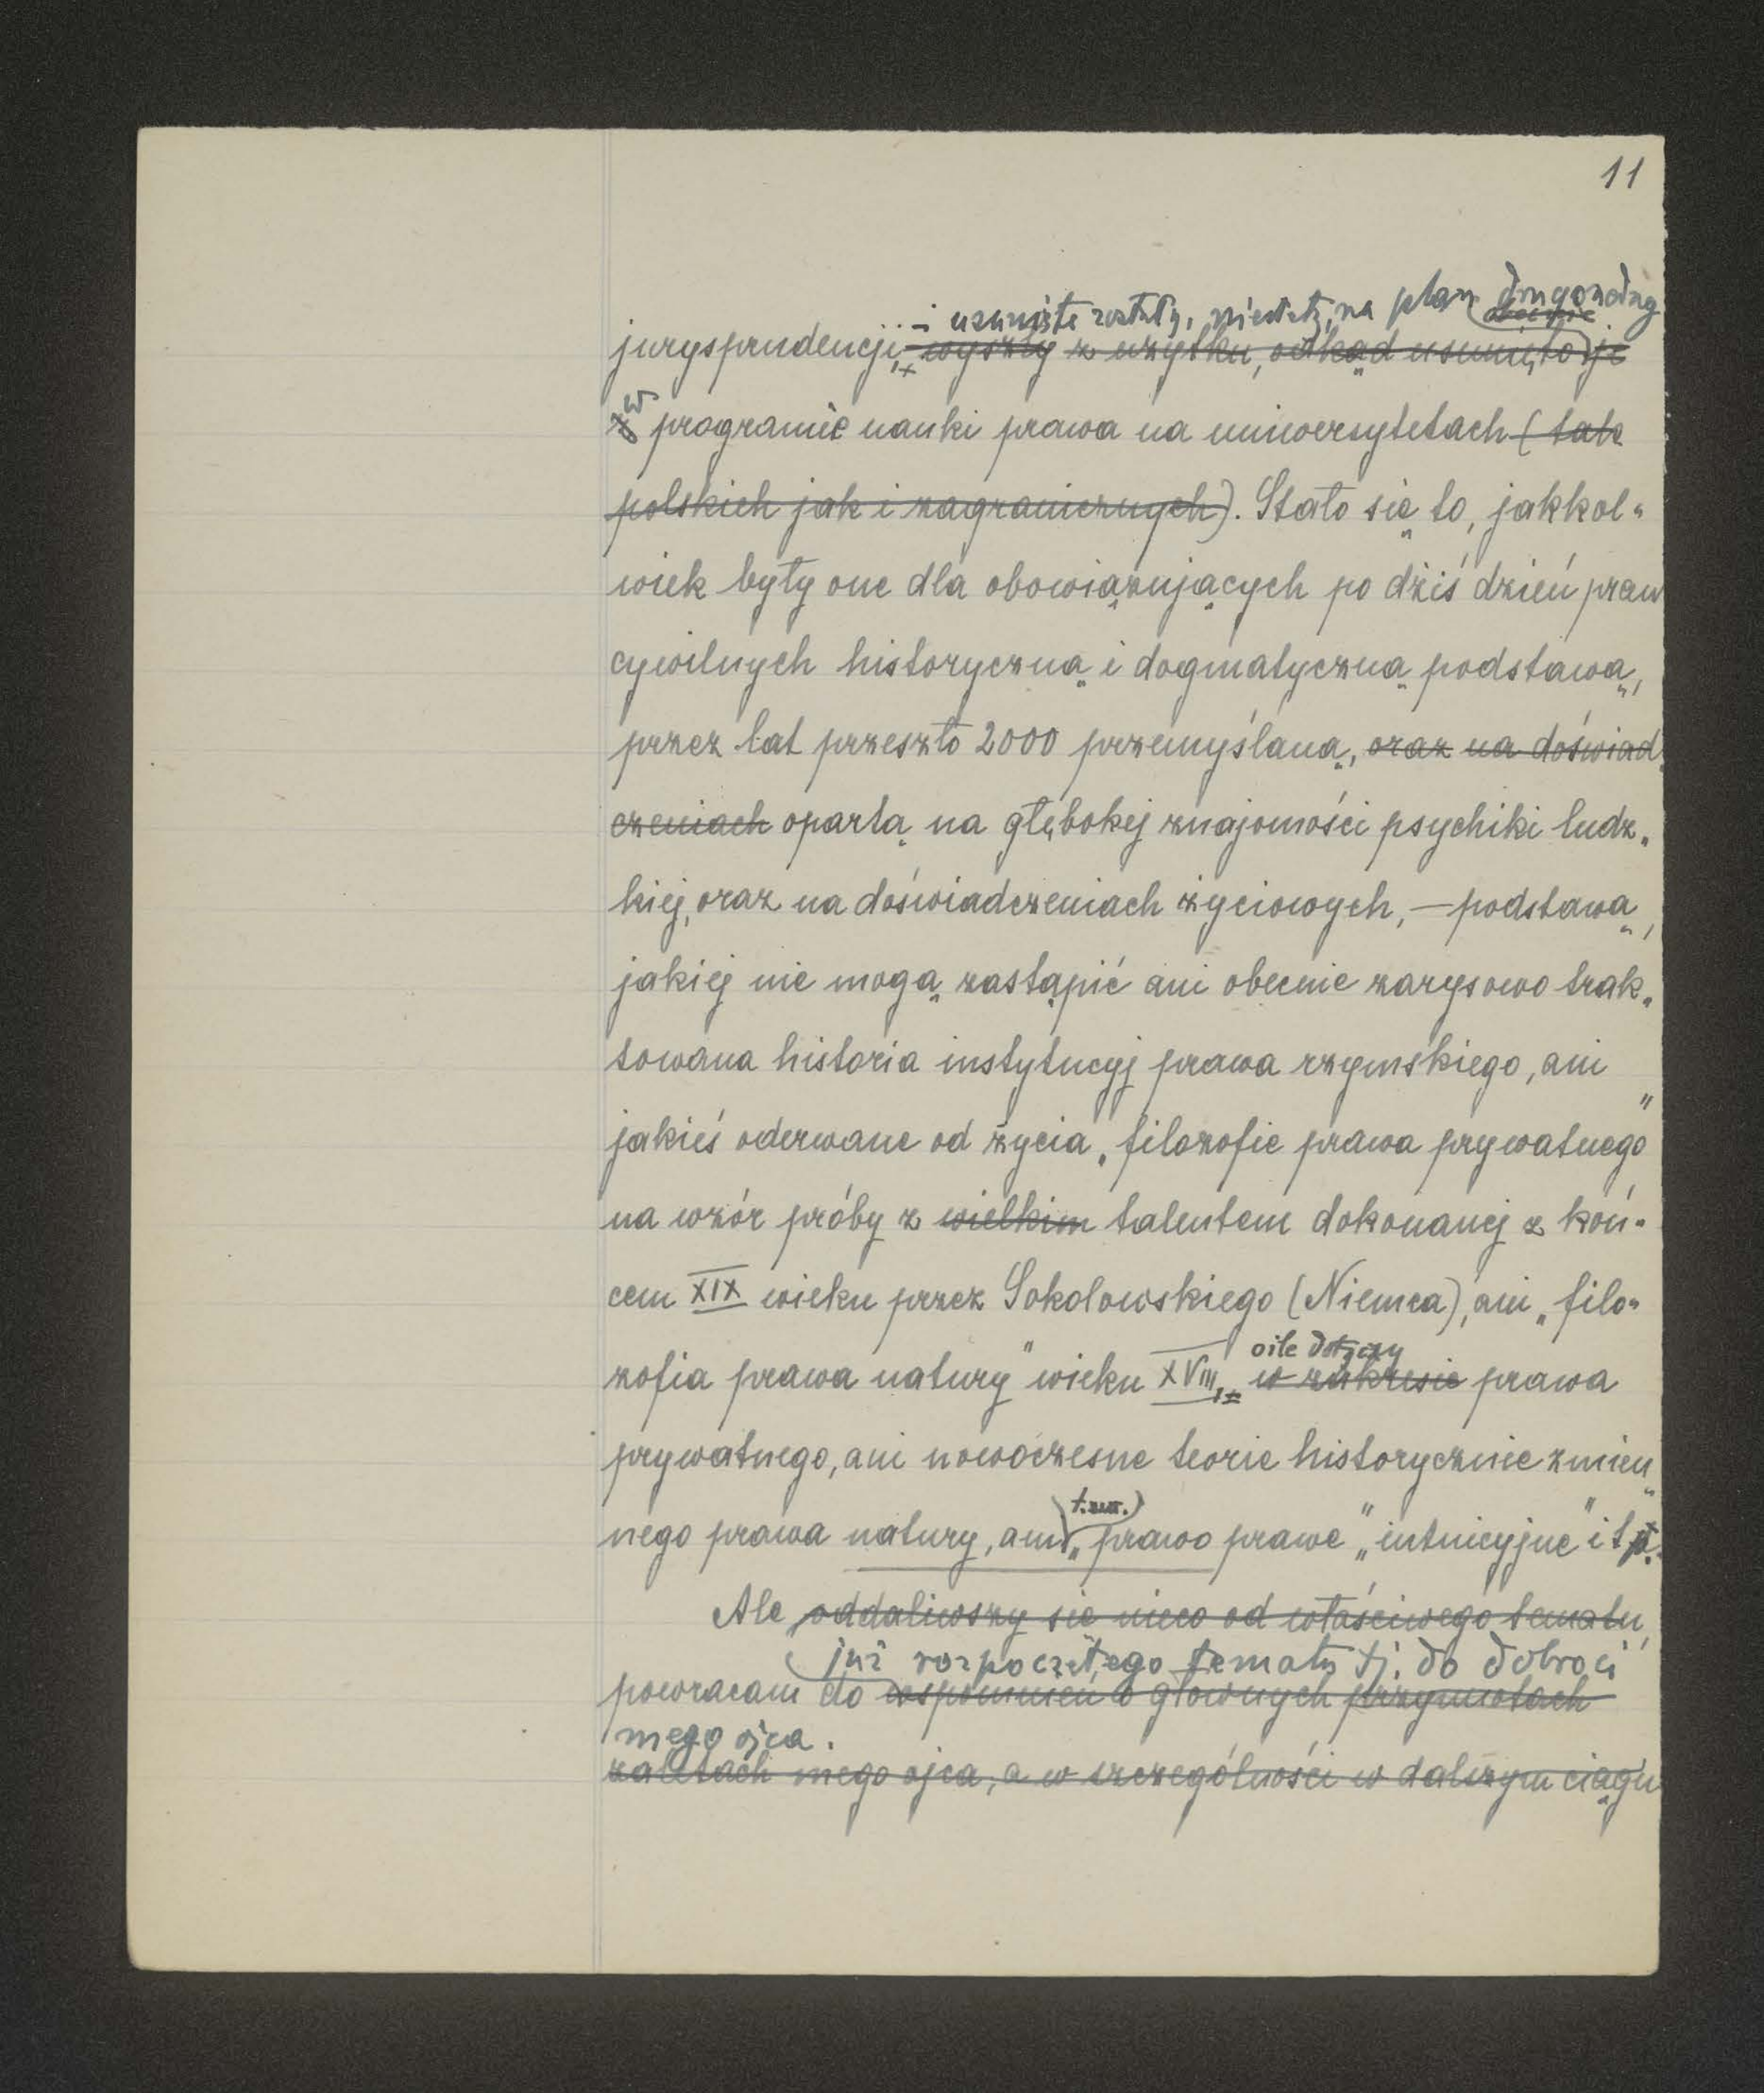 11
– usunięte zostały, niestety, na plan drugorzędny
obecnie
jurysprudencji, wyszły z użytku, odkąd usunięto je
w
z programie nauki prawa na uniwersytetach (tak
polskich jak i zagranicznych). Stało się to, jakkol-
wiek były one dla obowiązujących po dziś dzień praw
cywilnych historyczną i dogmatyczną podstawą,
przez lat przeszło 2000 przemyślaną, oraz na doświad-
czeniach opartą na głębokiej znajomości psychiki ludz-
kiej, oraz na doświadczeniach życiowych, – podstawą,
jakiej nie mogą zastąpić ani obecnie zarysowo trak-
towana historia instytucyj prawa rzymskiego, ani
jakieś oderwane od życia „filozofie prawa prywatnego"
na wzór próby z wielkim talentem dokonanej z koń-
cem XIX wieku przez Sokolowskiego (Niemca), ani „filo-
zofia prawa natury" wieku XVIII,
o ile dotyczy
w zakresie prawa
prywatnego, ani nowoczesne teorie historycznie zmien-
nego prawa natury, ani „prawo prawe" „intuicyjne" i t.p.
t.zw.
Ale oddaliwszy się nieco od właściwego tematu,
już rozpoczętego tematu tj. do dobroci
powracam do wspomnień o głównych przymiotach
mego ojca.
zaletach mego ojca, a w szczególności w dalszym ciągu